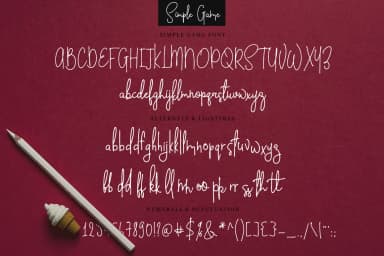 Simple Game
SIMPLE GAME FONT
ABCDEFGHIJKLMNOPQRSTUVWXYZ
abcdefghijklmnopqrstuvwxyz
ALTERNATE & LIGATURES
abbddffghhijkkllmnopqrsttuvwxyz
bb dd ff kk ll nn oo pp rr ss th tt
NUMERALS & PUNCTUATION
1234567890!?@#$%&*^()[]{}-_.,/\|~:;